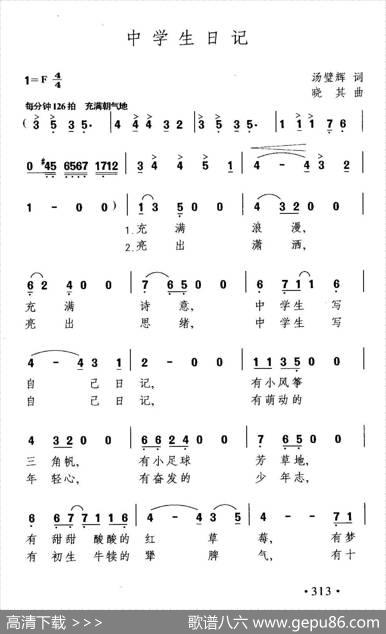 中学生日记
1=F 4/4
汤璧辉 词
每分钟126拍 充满朝气地
晓其 曲
( 3 5 3 5· | 4 4 4 3 2 | 3 5 3 5· | 1 1 1 7 6
0 #45 6567 1712 | 3 4 4 5 1 | 4 - 4 3 2
1 - 0 0 ) | 1 3 5 0 0 | 4 3 2 0 0
1.充 满 浪 漫,
2.亮 出 潇 洒,
6 2 4 0 0 | 7 6 5 0 0 | 6 7 1 1 6
充 满 诗 意, 中 学 生 写
亮 出 思 绪, 中 学 生 写
4 - 4 3 1 | 2 - 0 0 | 1 1 3 5 0 0
自 己 日 记, 有 小 风 筝
自 己 日 记, 有 萌 动 的
4 3 2 0 0 | 6 6 2 4 0 0 | 7 6 5 0 0
三 角 帆, 有 小 足 球 芳 草 地,
年 轻 心, 有 奋 发 的 少 年 志,
6 6 7 7 1 1 6 | 4 - 4 3 5 | 4 - 0 7 1
有 甜 甜 酸 酸 的 红 草 莓, 有 梦
有 初 生 牛 犊 的 犟 脾 气, 有 十
· 313 ·
高清下载 >>>
歌谱八六 www.gepu86.com